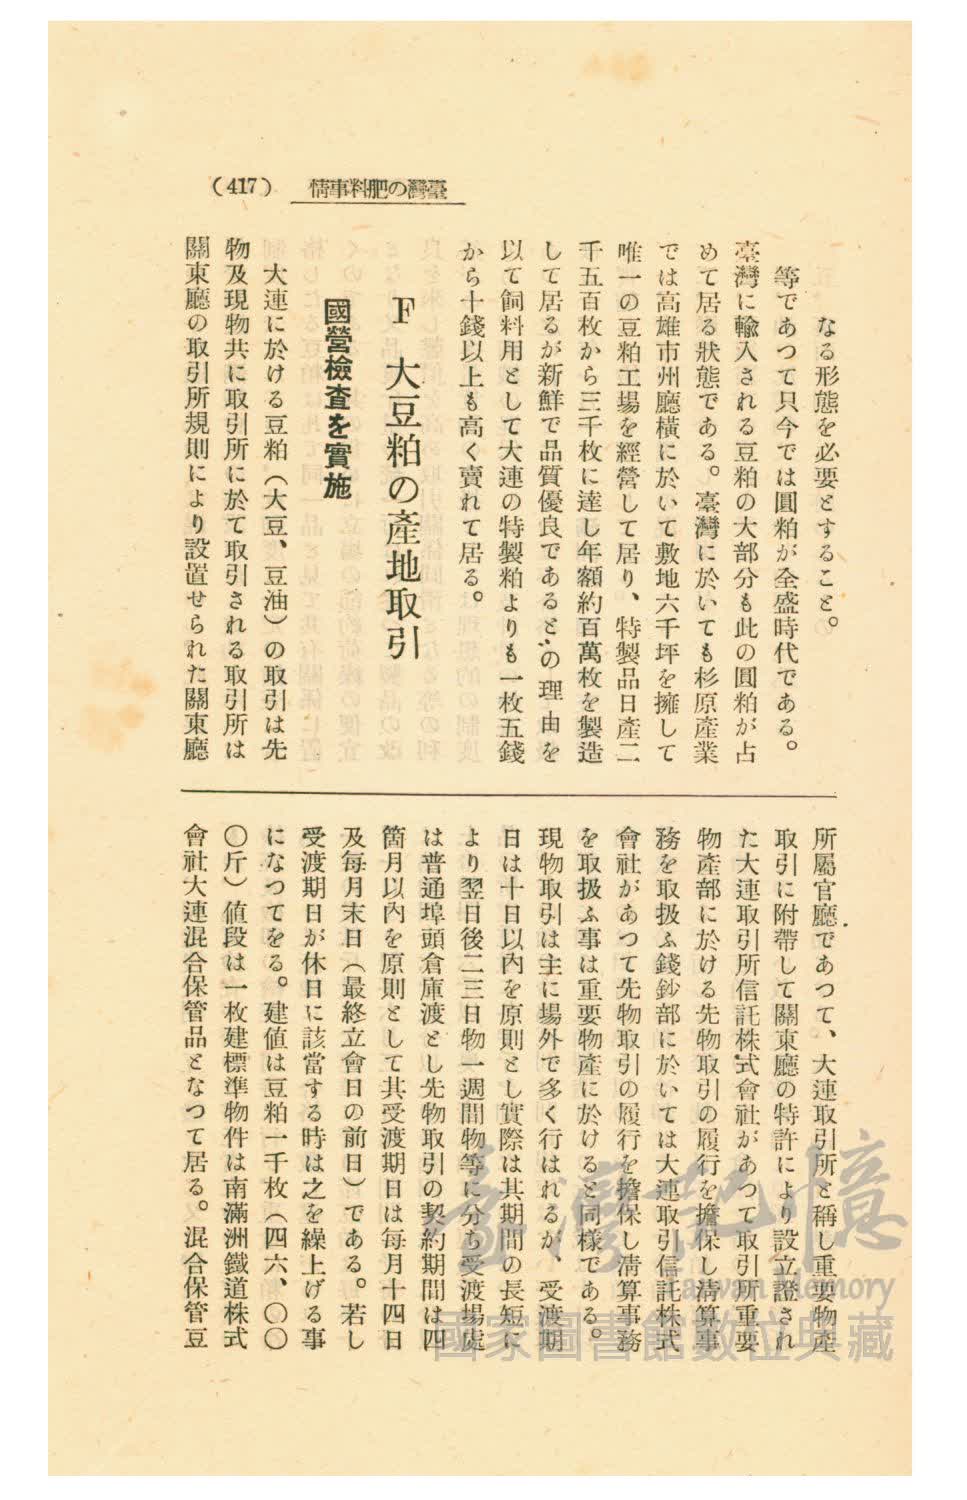 (417)　情事料肥の灣臺
なる形態を必要とすること。
等であつて只今では圓粕が全盛時代である。
臺灣に輸入される豆粕の大部分も此の圓粕が占
めて居る狀態である。臺灣に於いても杉原產業
では高雄市州廳橫に於いて敷地六千坪を擁して
唯一の豆粕工場を經營して居り、特製品日產二
千五百枚から三千枚に達し年額約百萬枚を製造
して居るが新鮮で品質優良であるとの理由を
以て飼料用として大連の特製粕よりも一枚五錢
から十錢以上も高く賣れて居る。
F　大豆粕の產地取引
國營檢査を實施
大連に於ける豆粕(大豆、豆油)の取引は先
物及現物共に取引所に於て取引される取引所は
關東廳の取引所規則により設置せられた關東廳
所屬官廳であつて、大連取引所と稱し重要物產
取引に附帶して關東廳の特許により設立證され
た大連取引所信託株式會社があつて取引所重要
物產部に於ける先物取引の履行を擔保し淸算事
務を取扱ふ錢鈔部に於いては大連取引信託株式
會社があつて先物取引の履行を擔保し淸算事務
を取扱ふ事は重要物產に於けると同樣である。
現物取引は主に場外で多く行はれるが、受渡期
日は十日以內を原則とし實際は其期間の長短に
より翌日後二三日物一週間物等に分ち受渡場處
は普通埠頭倉庫渡とし先物取引の契約期間は四
箇月以內を原則として其受渡期日は每月十四日
及每月末日(最終立會日の前日)である。若し
受渡期日が休日に該當する時は之を繰上げる事
になつてをる。建値は豆粕一千枚(四六、〇〇
〇斤)値段は一枚建標準物件は南滿洲鐵道株式
會社大連混合保管品となつて居る。混合保管豆
臺灣記憶
Taiwan Memory
國家圖書館數位典藏